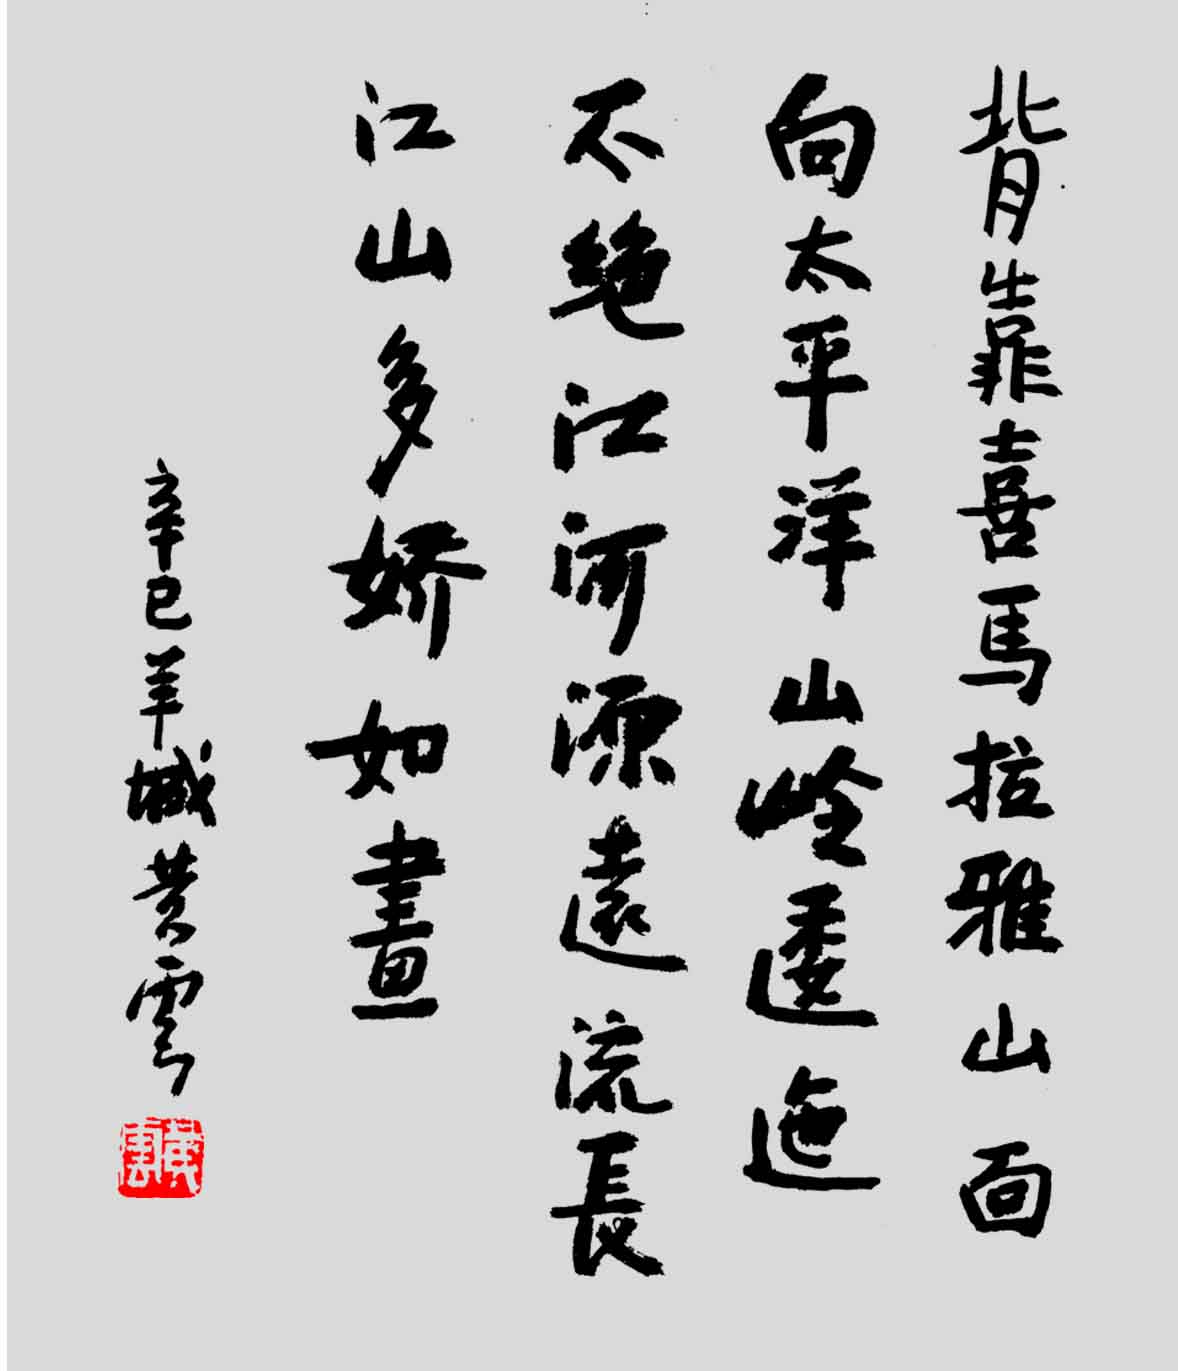 背靠喜馬拉雅山面
向太平洋山岭逶迤
不绝江河源遠流長
江山多娇如畫
辛巳羊城黄雲
黄雲